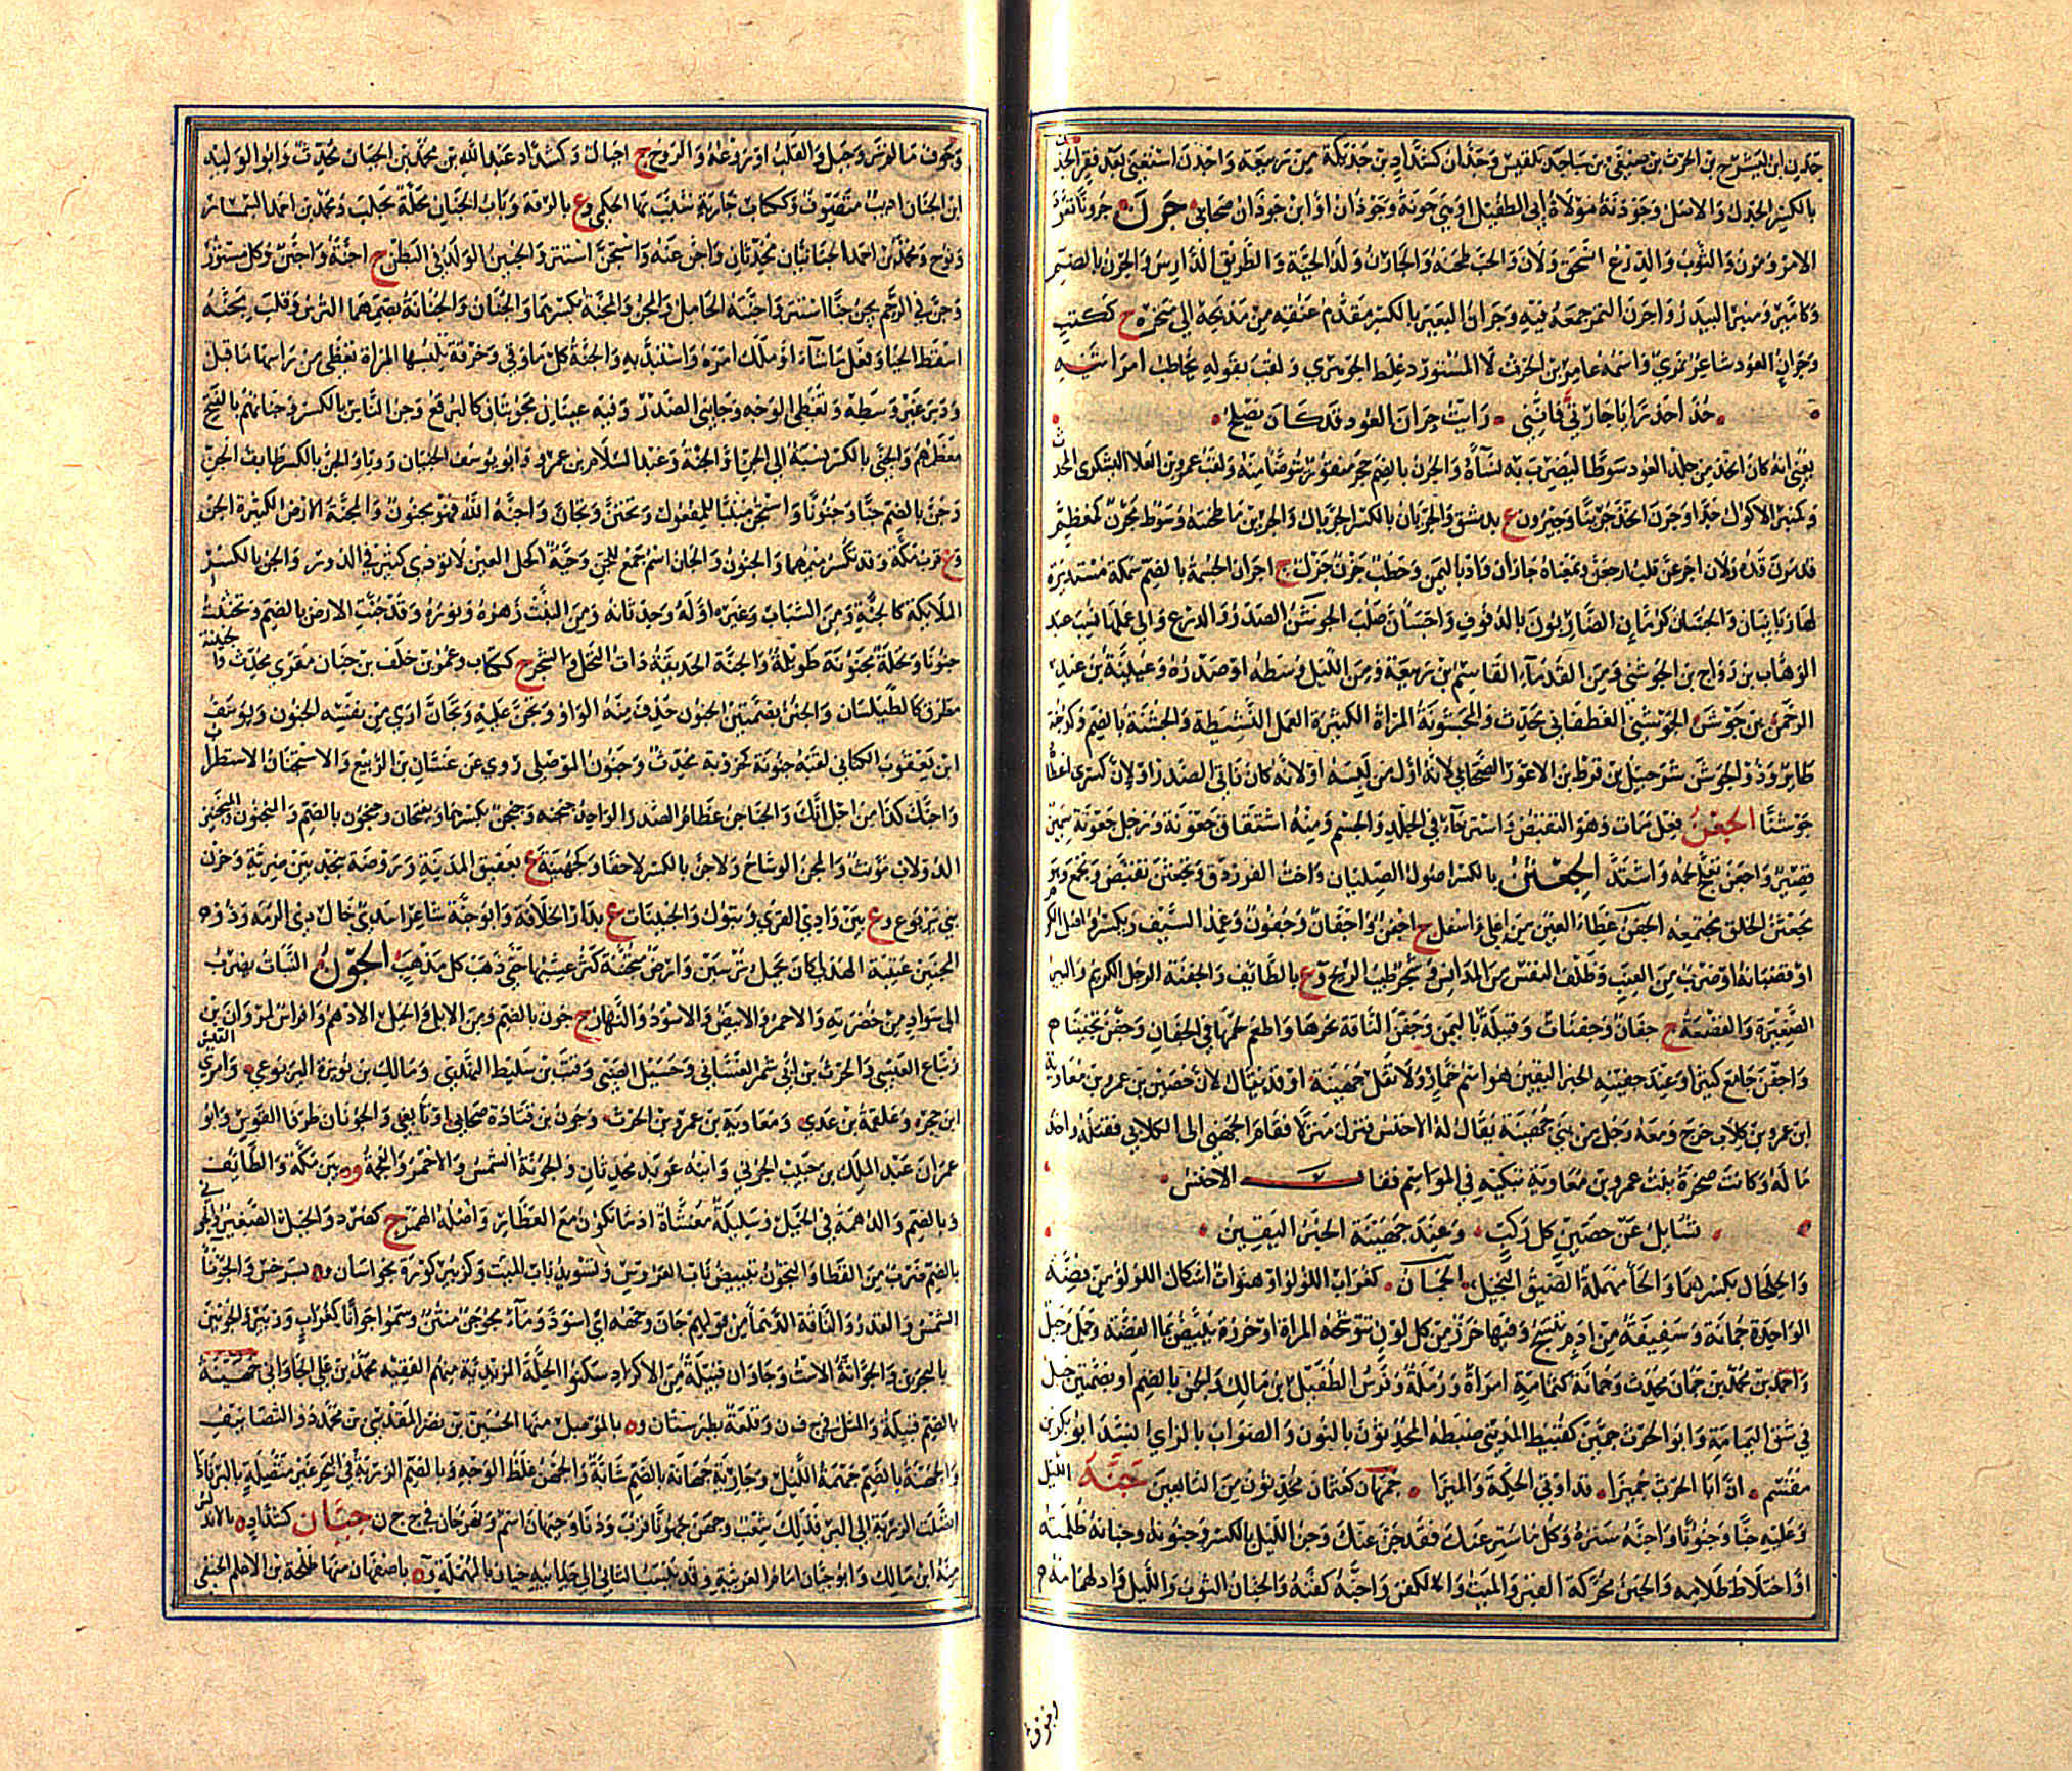 جدن ابن ليشرح بن الحرث بن صيفى بن سبا جد بلقيس وجدان كشداد بن جديلة من ربيعة واجدن استغنى بعد فقر الجذن
بالكسر الجذل والاصل وجوذنة مولاة ابى الطفيل او هى جونة وجوذان او ابن جوذان صحابى جرن جرونا تعود
الامر ومرن والثوب والدرع انسحق ولان والحب طحنه والجارن ولد الحية والطريق الدارس والجرن بالضم
وكامير ومنبر البيدر واجرن التمر جمعه فيه وجران البعير بالكسر مقدم عنقه من مذبحه الى منحره ج ككتب
وجران العود شاعر نمرى واسمه عامر بن الحرث لا المستورد وغلط الجوهرى ولقب بقوله يخاطب امراتيه
خذا حذرا يا جارتى فاننى رايت جران العود قد كان يصلح
يعنى انه كان اتخذ من جلد العود سوطا ليضرب به نساءه والجرن بالضم حجر منقور يتوضا منه ولقب عمرو بن العلا اليشكرى المحدث
وكمنبر الاكول جدا وجرن اتخذ جرينا وجيرون ع بدمشق والجريان بالكسر الجريال والجرين ما طحنته وسوط مجرن كمعظم
قد مرن قده ولان اجرعن قلب ارجعن وبمعناه جازان واد باليمن وحطب جزن جزل ج اجزان الجسمة بالضم سمكة مستديرة
لها زبانيان والجسان كرمان الضاربون بالدفوف واجسان صلب الجوشن الصدر والدرع والى عملها نسب عبد
الوهاب بن رواج بن الجوشنى ومن القدماء القاسم بن ربيعة ومن الليل وسطه او صدره وعيينة بن عبد
الرحمن بن جوشن الجوشنى الغطفانى محدث والمجشونة المراة الكثيرة العمل النشيطة والجشنة بالضم وكدجنة
طائر وذو الجوشن شرحبيل بن قرط بن الاعور الصحابى لانه اول من لبسه او لانه كان ناتئ الصدر او لان كسرى اعطاه
جوشنا الجعن فعل ممات وهو التقبض واسترخاء فى الجلد والجسم ومنه اشتقاق جعونة ورجل جعونة سمين
قصير واجعن تعلج لحمه واشتد الجعثن بالكسر اصول الصليان واخت الفرزدق وتجعثن تقبض وتجمع وهو
مجعثن الخلق مجتمعه الجفن غطاء العين من اعلى واسفل ج اجفن واجفان وجفون وغمد السيف ويكسر واصل الكرم
او قضبانه او ضرب من العنب وظلف النفس من المدانس وشجر طيب الريح وع بالطائف والجفنة الرجل الكريم والبئر
الصغيرة والقصعة ج جفان وجفنات وقبيلة باليمن وجفن الناقة نحرها واطعم لحمها فى الجفان وجفن تجفينا
واجفن جامع كثيرا وعند جفينة الخبر اليقين هو اسم خمار ولا تقل جهينة او قد يقال لان حصين بن عمرو بن معاوية
ابن عمرو بن كلاب خرج ومعه رجل من بنى جهينة يقال له الاخنس فنزلا منزلا فقام الجهنى الى الكلابى فقتله واخذ
ماله وكانت صخرة بنت عمرو بن معاوية تبكيه فى المواسم فقال الاخنس
تسائل عن حصين كل ركب وعند جهينة الخبر اليقين
والجلحان بكسرهما والحاء مهملة الضيق البخيل الجمان كغراب اللؤلؤ او هنوات اشكال اللؤلؤ من فضة
الواحدة جمانة وسفيفة من ادم ينسج وفيها خرز من كل لون تتوشحه المراة او خرزة يبيض بماء الفضة وجمل رجل
واحمد بن محمد بن جمان محدث وجمانة كثمامة امراة ورملة وفرس الطفيل بن مالك والجمن بالضم او بضمتين جبل
فى شق اليمامة وابو الحرث جمين كقبيط المدينى ضبطه المحدثون بالنون والصواب بالزاى انشد ابو بكر بن
مقسم ان ابا الحرث جميزا قد اوتى الحكمة والميزا جمهان كعثمان محدثون من التابعين جنه الليل
وعليه جنا وجنونا واجنه ستره وكل ما ستر عنك فقد جن عنك وجن الليل بالكسر وجنونه وجنانه ظلمته
او اختلاط ظلامه والجنن محركة القبر والميت والكفن واجنه كفنه والجنان الثوب والليل او ادلهمامه
وجوف ما لم تر وجبل والقلب او روعه والروح ج اجنان وكشداد عبد الله بن محمد بن الجنان محدث وابو الوليد
ابن الجنان اديب متصوف وككتاب جارية شبب بها الحكمى وع بالرقة وباب الجنان محلة بحلب ومحمد بن احمد السمسار
ونوح ومحمد بن احمد الجنانيان محدثان واجن عنه واستجن استتر والجنين الولد فى البطن ج اجنة واجنن وكل مستور
وجن فى الرحم يجن جنا استتر واجنته الحامل والمجن والمجنة بكسرهما والجنان والجنانة بضمهما الترس وقلب مجنه
اسقط الحيا وفعل ما شاء او ملك امره واستبد به والجنة كل ما وقى وخرقة تلبسها المراة تغطى من راسها ما قبل
ودبر غير وسطه وتغطى الوجه وجانبى الصدر وفيه عينان مجوبتان كالبرقع وجن الناس بالكسر وجنانهم بالفتح
معظمهم والجنى بالكسر نسبة الى الجن او الجنة وعبد السلام بن عمرو وابو يوسف الجنيان رويا والجن بالكسر الجن
وجن بالضم جنا وجنونا واستجن مبنيا للمفعول وتجنن وتجان واجنه الله فهو مجنون والمجنة الارض الكثيرة الجن
وع قرب مكة وقد تكسر ميمهما والجنون والجان اسم جمع للجن وحية اكحل العين لا تؤذى كثير فى الدور والجن بالكسر
الملائكة كالجنة ومن الشباب وغيره اوله وحدثانه ومن النبت زهره ونوره وقد جنت الارض بالضم وتجننت
جنونا ونخلة مجنونة طويلة والجنة الحديقة ذات النخل والشجر ج ككتاب وعمرو بن خلف بن جنان مقرى محدث والجنينة
مطرف كالطيلسان والجنن بضمتين الجنون حذف منه الواو وتجنن عليه وتجان ارى من نفسه الجنون ويوسف
ابن يعقوب الكنانى لقبه جنونة كخروبة محدث وجنون الموصلى روى عن غسان بن الربيع والاستجنان الاستطراب
واجنك كذا من اجل انك والجناجن عظام الصدر الواحد جنجنه وجنجن بكسرهما ويفتحان وجنجون بالضم والمنجنون والمنجنين
الدولاب مؤنث والمجن الوشاح ولا جن بالكسر لا خفاء وكجهينة ع بعقيق المدينة وروضة بنجد بين ضرية وحزن
بنى يربوع وع بين وادى القرى وتبوك والجنينات ع بدار الخلافة وابو جنة شاعر اسدى خال ذى الرمة وذو
المجنين عتيبة الهذلى كان يحمل ترسين وارض مجنة كثر عشبها حتى ذهب كل مذهب الجون النبات يضرب
الى سواد من خضرته والاحمر والابيض والاسود والنهار ج جون بالضم ومن الابل والخيل الادهم وافراس لمروان بن
زنباع العبسى والحرث بن ابى شمر الغسانى وحسيل الضبى وقتب بن سليط النهدى ومالك بن نويرة اليربوعى وامرئ القيس
ابن حجر وعلقمة بن عدى ومعاوية بن عمرو بن الحرث وجون بن قتادة صحابى او تابعى والجونان طرفا القوس وابو
عمران عبد الملك بن حبيب الجونى وابنه عويد محدثان والجونة الشمس والاحمر والفحمة وه بين مكة والطائف
وبالضم والدهمة فى الخيل وسليلة مغشاة ادما تكون مع العطارين واصله الهمز ج كصرد والجبل الصغير والجونى
بالضم ضرب من القطا والتجون تبييض باب العروس وتسويد باب الميت وكزبير كورة بخراسان وه بسرخس والجونا
الشمس والقدر والناقة الدهماء من قولهم جان وجهه اى اسود وماء مجوجن منتن وسموا جوانا كغراب وزبير والجونين
بالبحرين والجوانة الاست وجاوان قبيلة من الاكراد سكنوا الحلة المزيدية منهم الفقيه محمد بن على الجاوانى جهينة
بالضم قبيلة والمثل فى ج ف ن وقلعة بطبرستان وه بالموصل منها الحسين بن نصر المقدسى بن محمد ذو التصانيف
والجهنة بالضم جهمة الليل وجارية جهانة بالضم شابة والجهن غلظ الوجه وبالضم
جيان كشداد ه بالاندلس
منه ابن مالك وابو حيان اماما العربية وه باصفهان منها طلحة بن الاعلم الحنفى